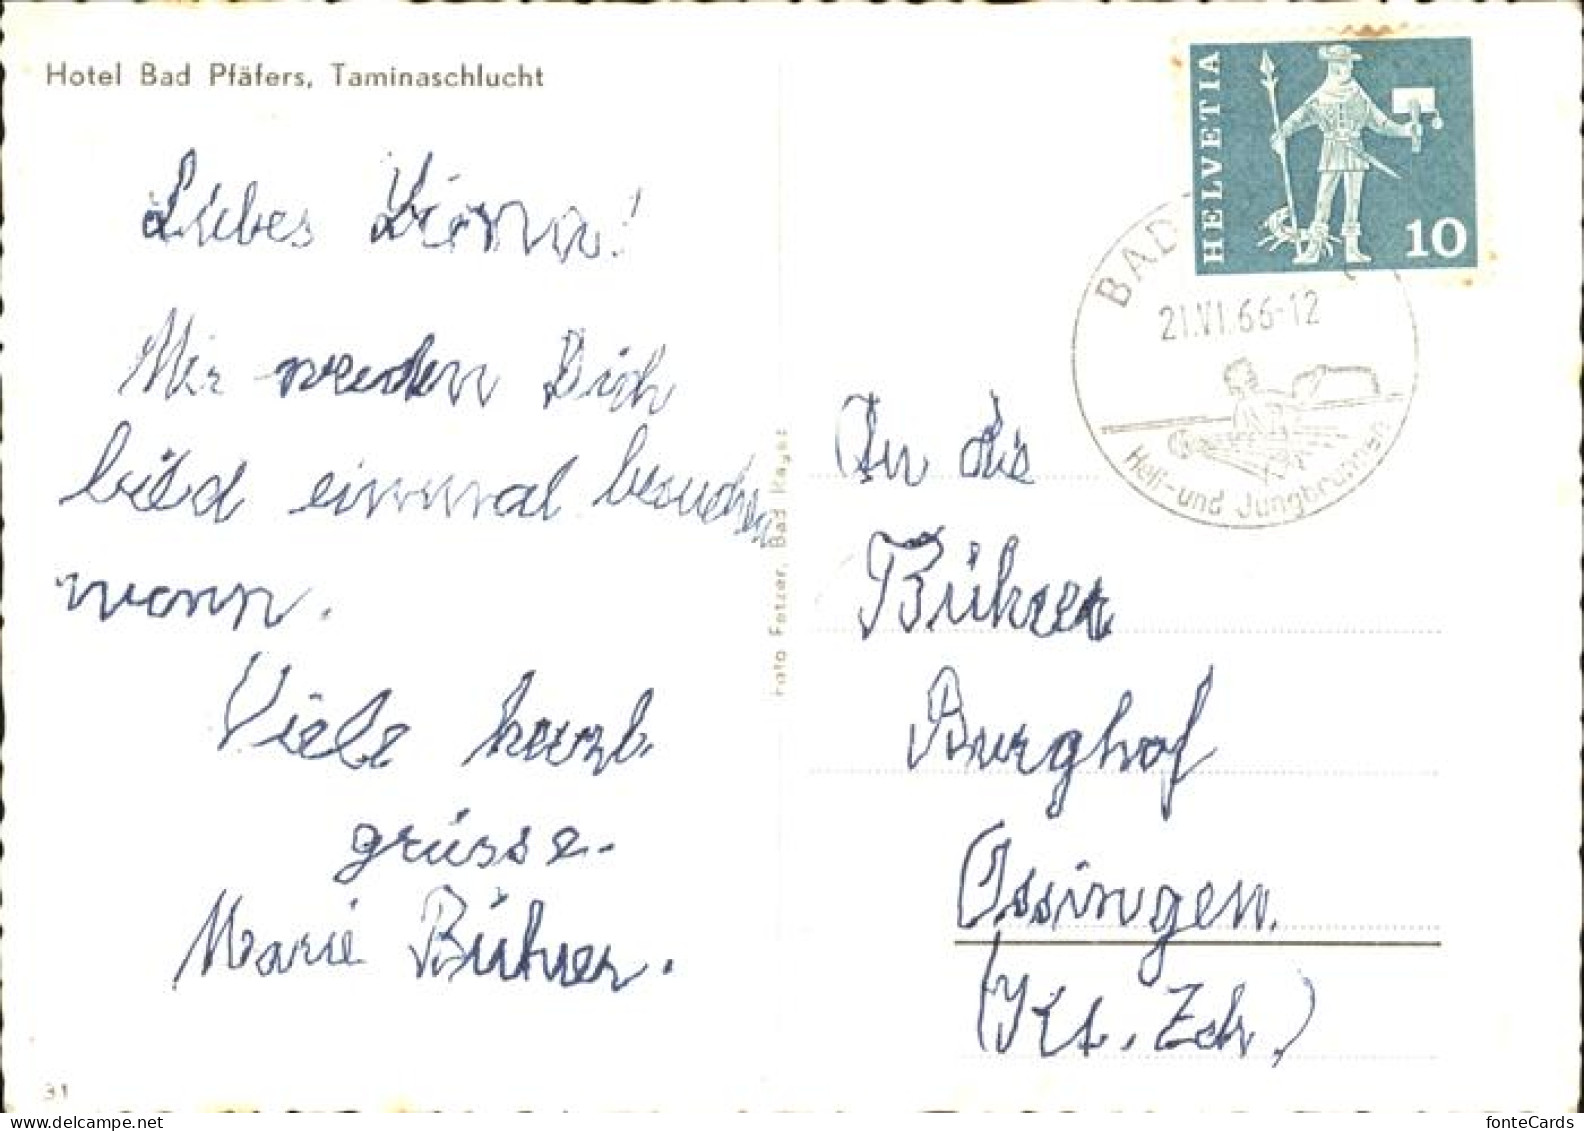 Hotel Bad Pfäfers, Taminaschlucht
Liebes
Mir werden Dich
bald einmal besuchen
wann.
Viele herzl.
grüsse.
Marie Bührer.
31
Foto Fetzer, Bad Ragaz
HELVETIA
10
BAD
21.VI.66-12
Heil- und Jungbrunnen
An die
Bührer
Burghof
Ossingen.
(Kt. Zch.)
fonteCards